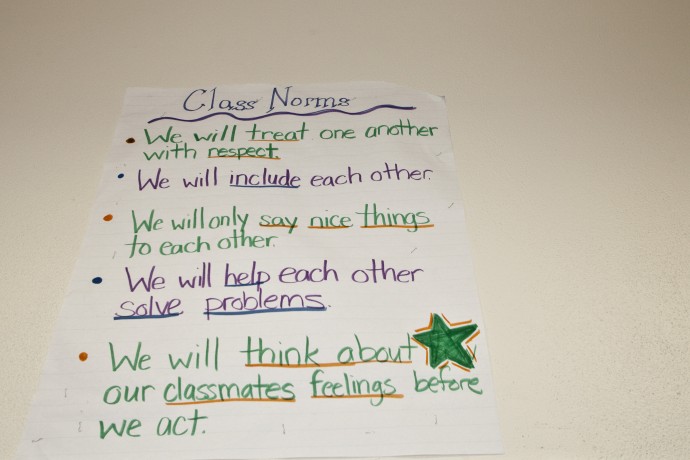 Class Norms
We will treat one another
with respect.
We will include each other.
We will only say nice things
to each other.
We will help each other
solve problems.
We will think about
our classmates feelings before
we act.